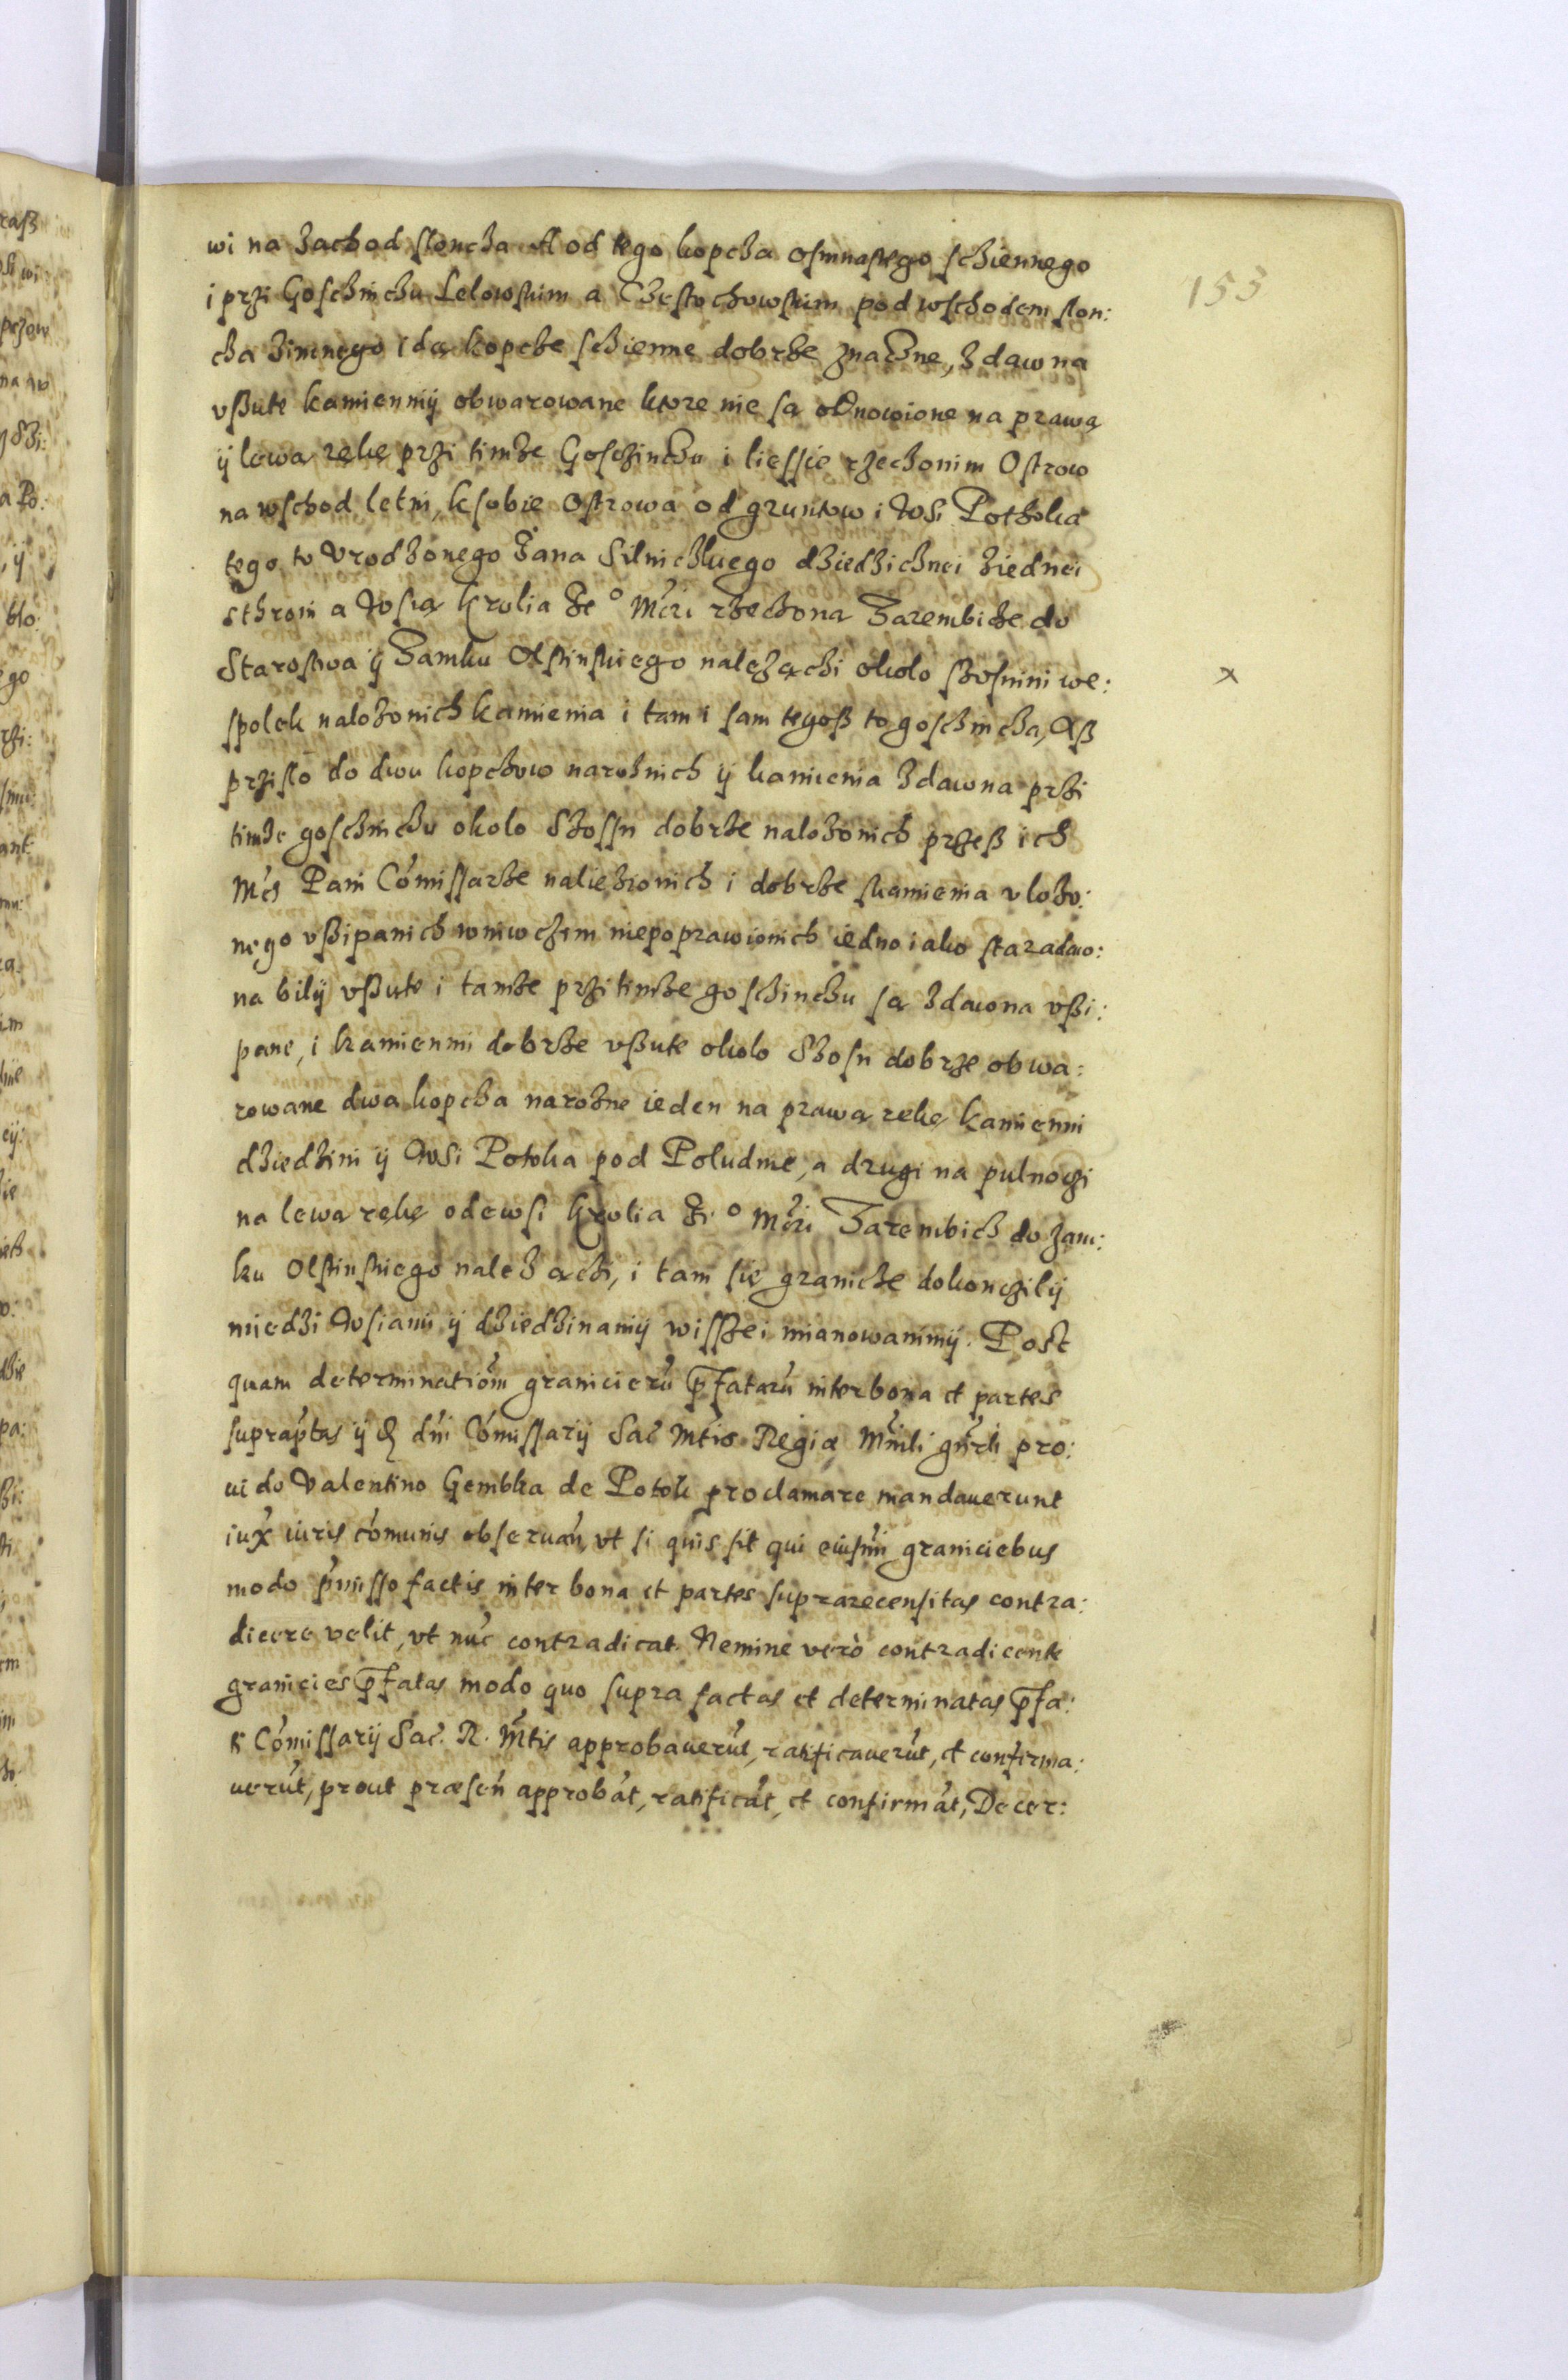 153
wi na zachod sloncza A od tego kopcza osmnastego sciennego
i przi Goschinczu Lelowskim a Czestochowskim pod wschodem slon:
cza zimnego idą kopcze scienne dobrze znaczne, z dawna
vßute kamienmij obwarowane ktore nie są odnowione na prawą
ij lewą rękę przi timze Gosczinczu i liessie rzeczonim Ostrow
na wschod letni, ksobie Ostrowa od gruntow i wsi Pothoka
tego to Vrodzonego Jana Silnickkiego dziedzicznei ziednei
sthroni a wsią krolia Je° Mczi rzeczoną Zarembicze do
Starostwa ij Zamku Olstinskiego należączi około szosnini we:
spolek nalozonich kamienia i tam i sam tegoß to goschincza, Aß
prziszlo do dwu kopczow naroznich ij kamienia z dawna przi
timze goschinczu około Szossn dobrze nalozonich przeß ich
Mcz Pani Comissarze naliezionich i dobrze skamienia vlozo:
nego vßipanich wniwczem niepoprawionich iedno iako staradaw:
na bilij vßute i tamze przitimze goschinczu są z dawna vßi:
pane, i kamienmi dobrze vßute około Szosn dobrze obwa:
rowane dwa kopcza narozne ieden na prawą rekę kamienmi
dziedzini ij wsi Potoka pod Poludnie, a drugi na pulnoczi
na lewą rękę odewsi krolia Je° Mczi Zarembich do zam:
ku Olstinskiego należączi, i tam się granicze dokonczilij
miedzi wsiami ij dziedzinamij wisszei mianowanimij. Post
quam determinationem granicierū pfatarū inter bona et partes
supraptas ijdē dni Comissarij Sac Mtis Regiæ Mnli gnrli pro:
uido Valentino Gembka de Potok proclamare mandauerunt
iux iuris comunis obseruan, vt si quis sit qui eiusmi graniciebus
modo pmisso factis inter bona et partes suprarecensitas contra:
dicere velit, vt nuc contradicat. Nemine verò contradicente
granicies pfatas modo quo supra factas et determinatas pfa:
ti Comissarij Sac. R. Mtis approbauerut, ratificauerut, et confirma:
uerut, prout præsen approbāt, ratificāt, et confirmāt, Decer: